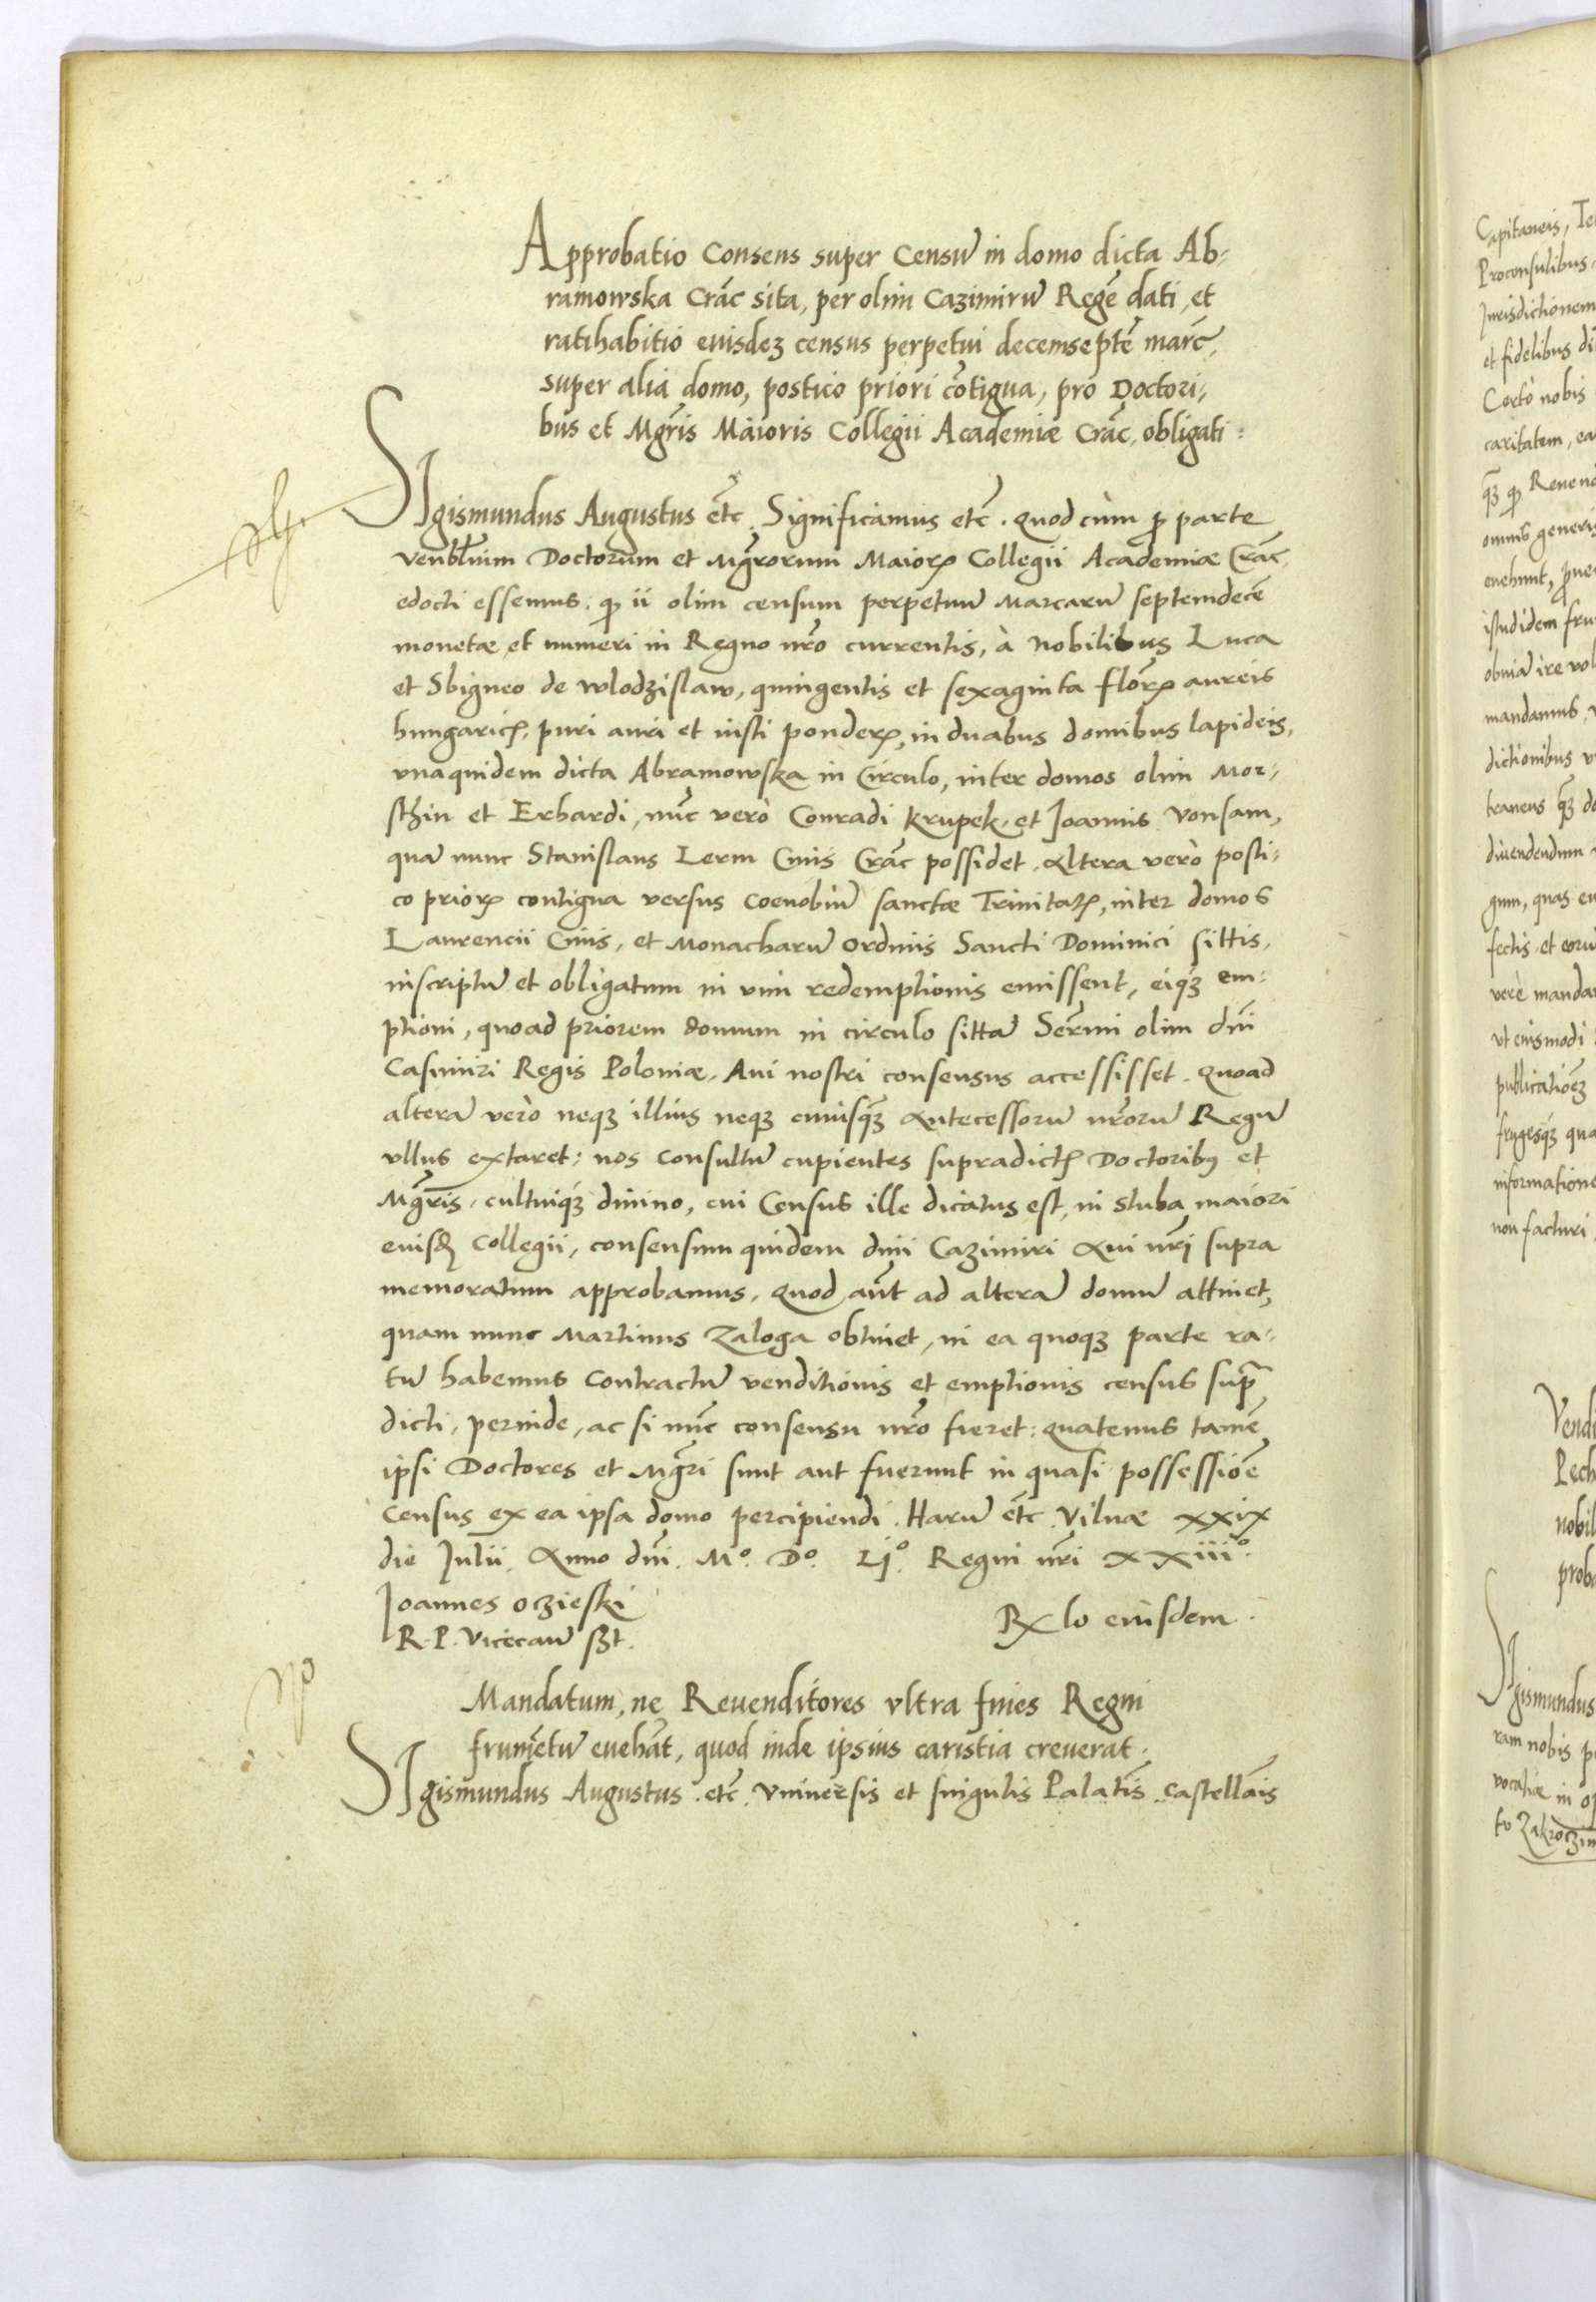 Approbatio Consens super Censu̅ in domo dicta Ab-
ramowska Crac̅ sita, per olim Cazimiru̅ Rege̅ dati, et
ratihabitio euisdeʒ census perpetui decemsepte̅ marc̅,
super alia domo, postico priori co̅tigua, pro Doctori-
bus et Mg̅ris Maioris Collegii Academiæ Crac̅, obligati:
Sigismundus Augustus etc̅ Significamus etc̅. quod cùm ꝑ parte
venbl̅ium Doctorum et Mg̅rorum Maioꝝ Collegii Academiæ Crac̅
edocti essemus: ꝙ ii olim censum perpetuu̅ Marcaru̅ septemdece̅
monetæ et numeri in Regno nr̅o currentis, à Nobilibus Luca
et Sbigneo de Wlodzislaw, quingentis et sexaginta flor̅ꝝ aureis
hungaricꝭ, puri auri et iusti ponderꝭ, in duabus domibus lapideis,
vna quidem dicta Abramowska in Circulo, inter domos olim Mor-
sthin et Erhardi, nu̅c verò Conradi Krupek, et Joannis Vonsam,
qua̅ nunc Stanislaus Lerm Ciuis Crac̅ possidet. Altera verò posti-
co prioꝝ contigua versus Coenobiu̅ sanctæ Trinitatꝭ, inter domos
Laurencii Ciuis, et Monacharu̅ Ordinis Sancti Dominici sittis,
inscriptu̅ et obligatum in vim redemptionis emissent, eiqʒ em-
ptioni, quoad priorem domum in circulo sitta̅ Ser̅mi olim dn̅i
Casimiri Regis Poloniæ, Aui nostri consensus accessisset. Quoad
altera̅ verò neqʒ illius neqʒ cuiusqʒ Antecessoru̅ nr̅oru̅ Regu̅
vllus extaret: nos consultu̅ cupientes supradictꝭ Doctoribꝰ et
Mg̅ris, cultuiqʒ diuino, cui Census ille dicatus est, in stuba maiori
euisd̅ Collegii, consensum quidem diui Cazimiri Aui nr̅i supra
memoratum approbamus, Quod au̅t ad altera̅ domu̅ attinet,
quam nunc Martinus Zaloga obtinet, in ea quoqʒ parte ra-
tu̅ habemus Contractu̅ venditionis et emptionis census supra̅
dicti, perinde, ac si nu̅c consensu nr̅o fieret: quatenus tame̅
ipsi Doctores et Mg̅ri sunt aut fuerunt in quasi possessio̅e
Census ex ea ipsa domo percipiendi. Haru̅ etc̅. Vilnæ xxix
die Julii. Anno dn̅i. Mº. Dº. Ljº. Regni nr̅i xxiiiº.
Joannes Oczieski
R. P. Vicecan̅ sst.
Rlo eiusdem.
Mandatum, ne Reuenditores vltra fines Regni
frume̅tu̅ eueha̅t, quod inde ipsius caristia creuerat.
Sigismundus Augustus. etc̅ Vniuersis et singulis Palatin̅is Castella̅is
Capitaneis,
Proconsulibus
Jurisdictionem
et fidelibus
Certò nobis
caritatem,
omnis generis
euehunt,
istud idem
obuia̅ ire
mandamus,
dictionibus
diuendendum
gnum, quas
fectis et
verè
vt euismodi
publicatio̅eʒ
frugesqʒ
informatione
non facturi
Sigismundus
ram nobis
in
to